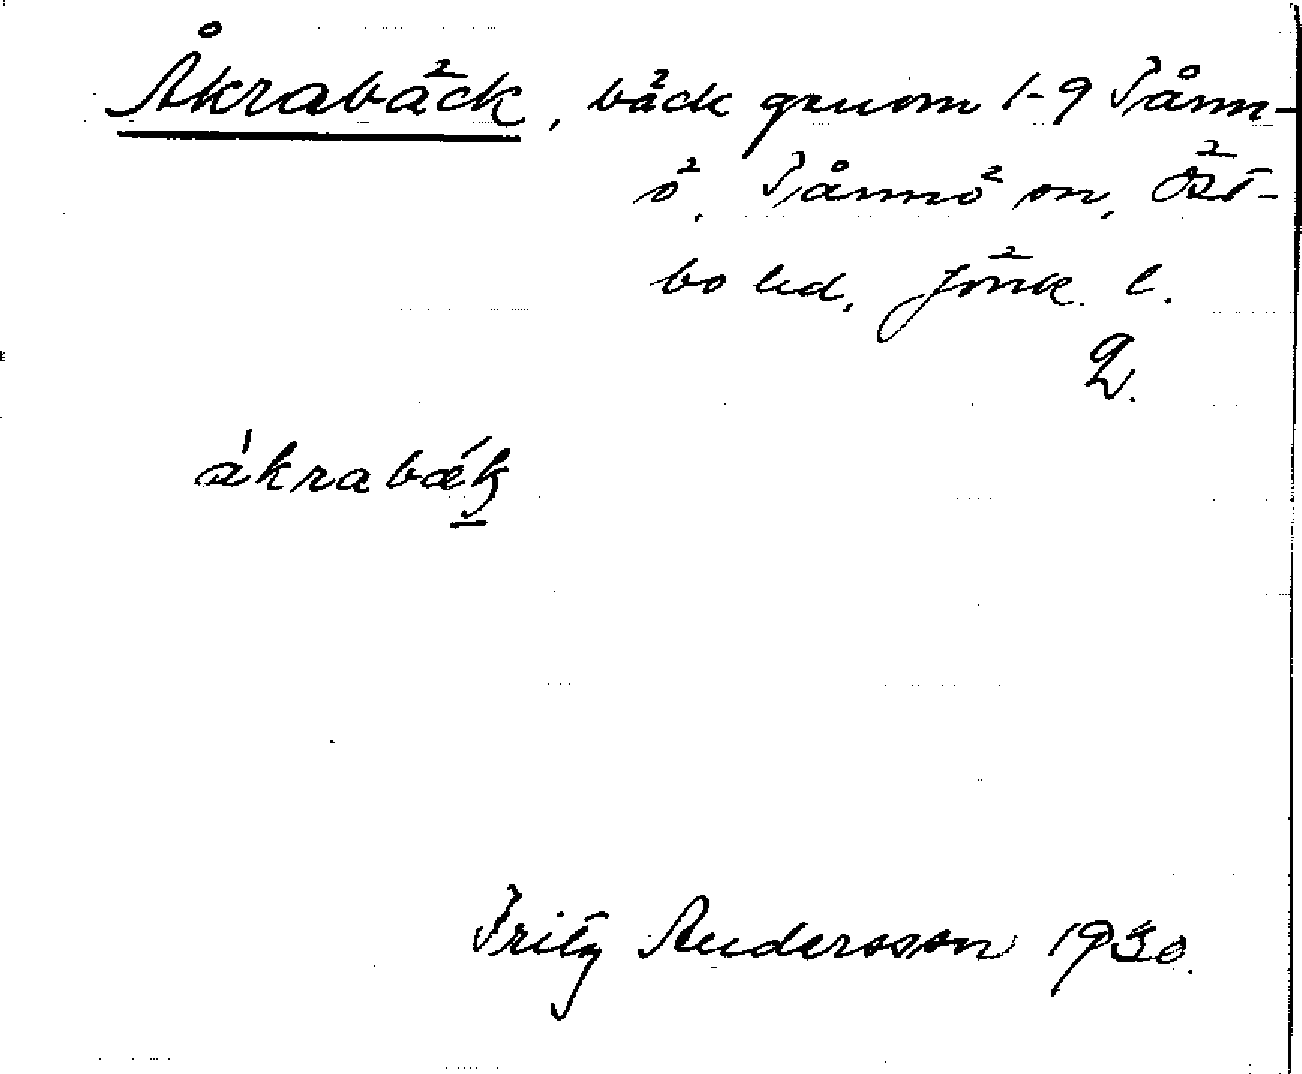 Åkrabäck, bäck genom 1-9 Tånn-
ö, Tånnö sn, Öst-
bo hd, Jönk. l.
2.
åkrabæk
Fritz Andersson 1930.